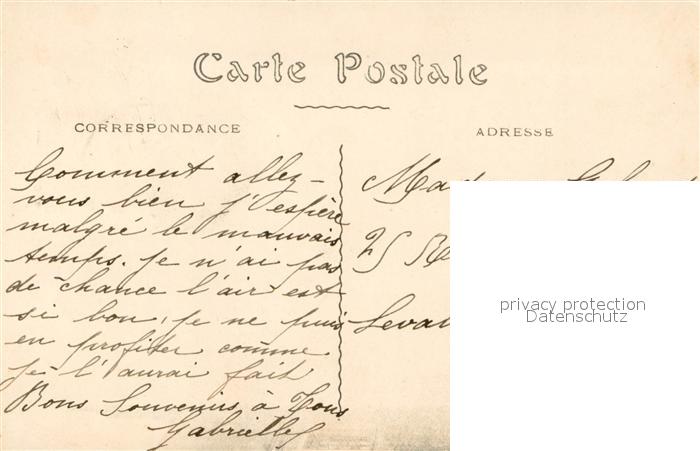 Carte Postale
CORRESPONDANCE
ADRESSE
Comment allez-
vous bien j'espère
malgré le mauvais
temps. je n'ai pas
de chance l'air est
si bon, je ne puis
en profiter comme
je l'aurai fait
Bons Souvenirs à Tous
Gabrielle
25
privacy protection
Datenschutz